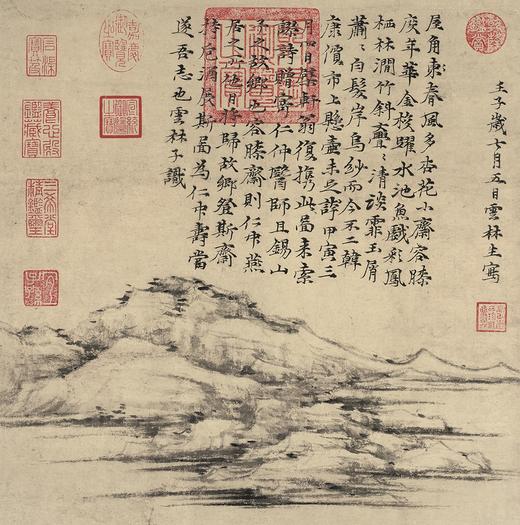 壬子歲七月五日雲林生寫
屋角東春風多杏花小齋容膝
度年華金梭躍水池魚戲彩鳳
栖林澗竹斜亹〻清談霏玉屑
蕭〻白髮岸烏紗而今不二韓
康價市上懸壺未足誇甲寅三
月四日檗軒翁復携此圖來索
謬詩贈寄仁仲醫師且錫山
予之故鄉也容膝齋則仁仲燕
居之所他日將歸故鄉登斯齋
持卮酒展斯圖為仁仲壽當
遂吾志也雲林子識
嘉慶御覽之寶
石渠寶笈
三希堂精鑑璽
宜子孫